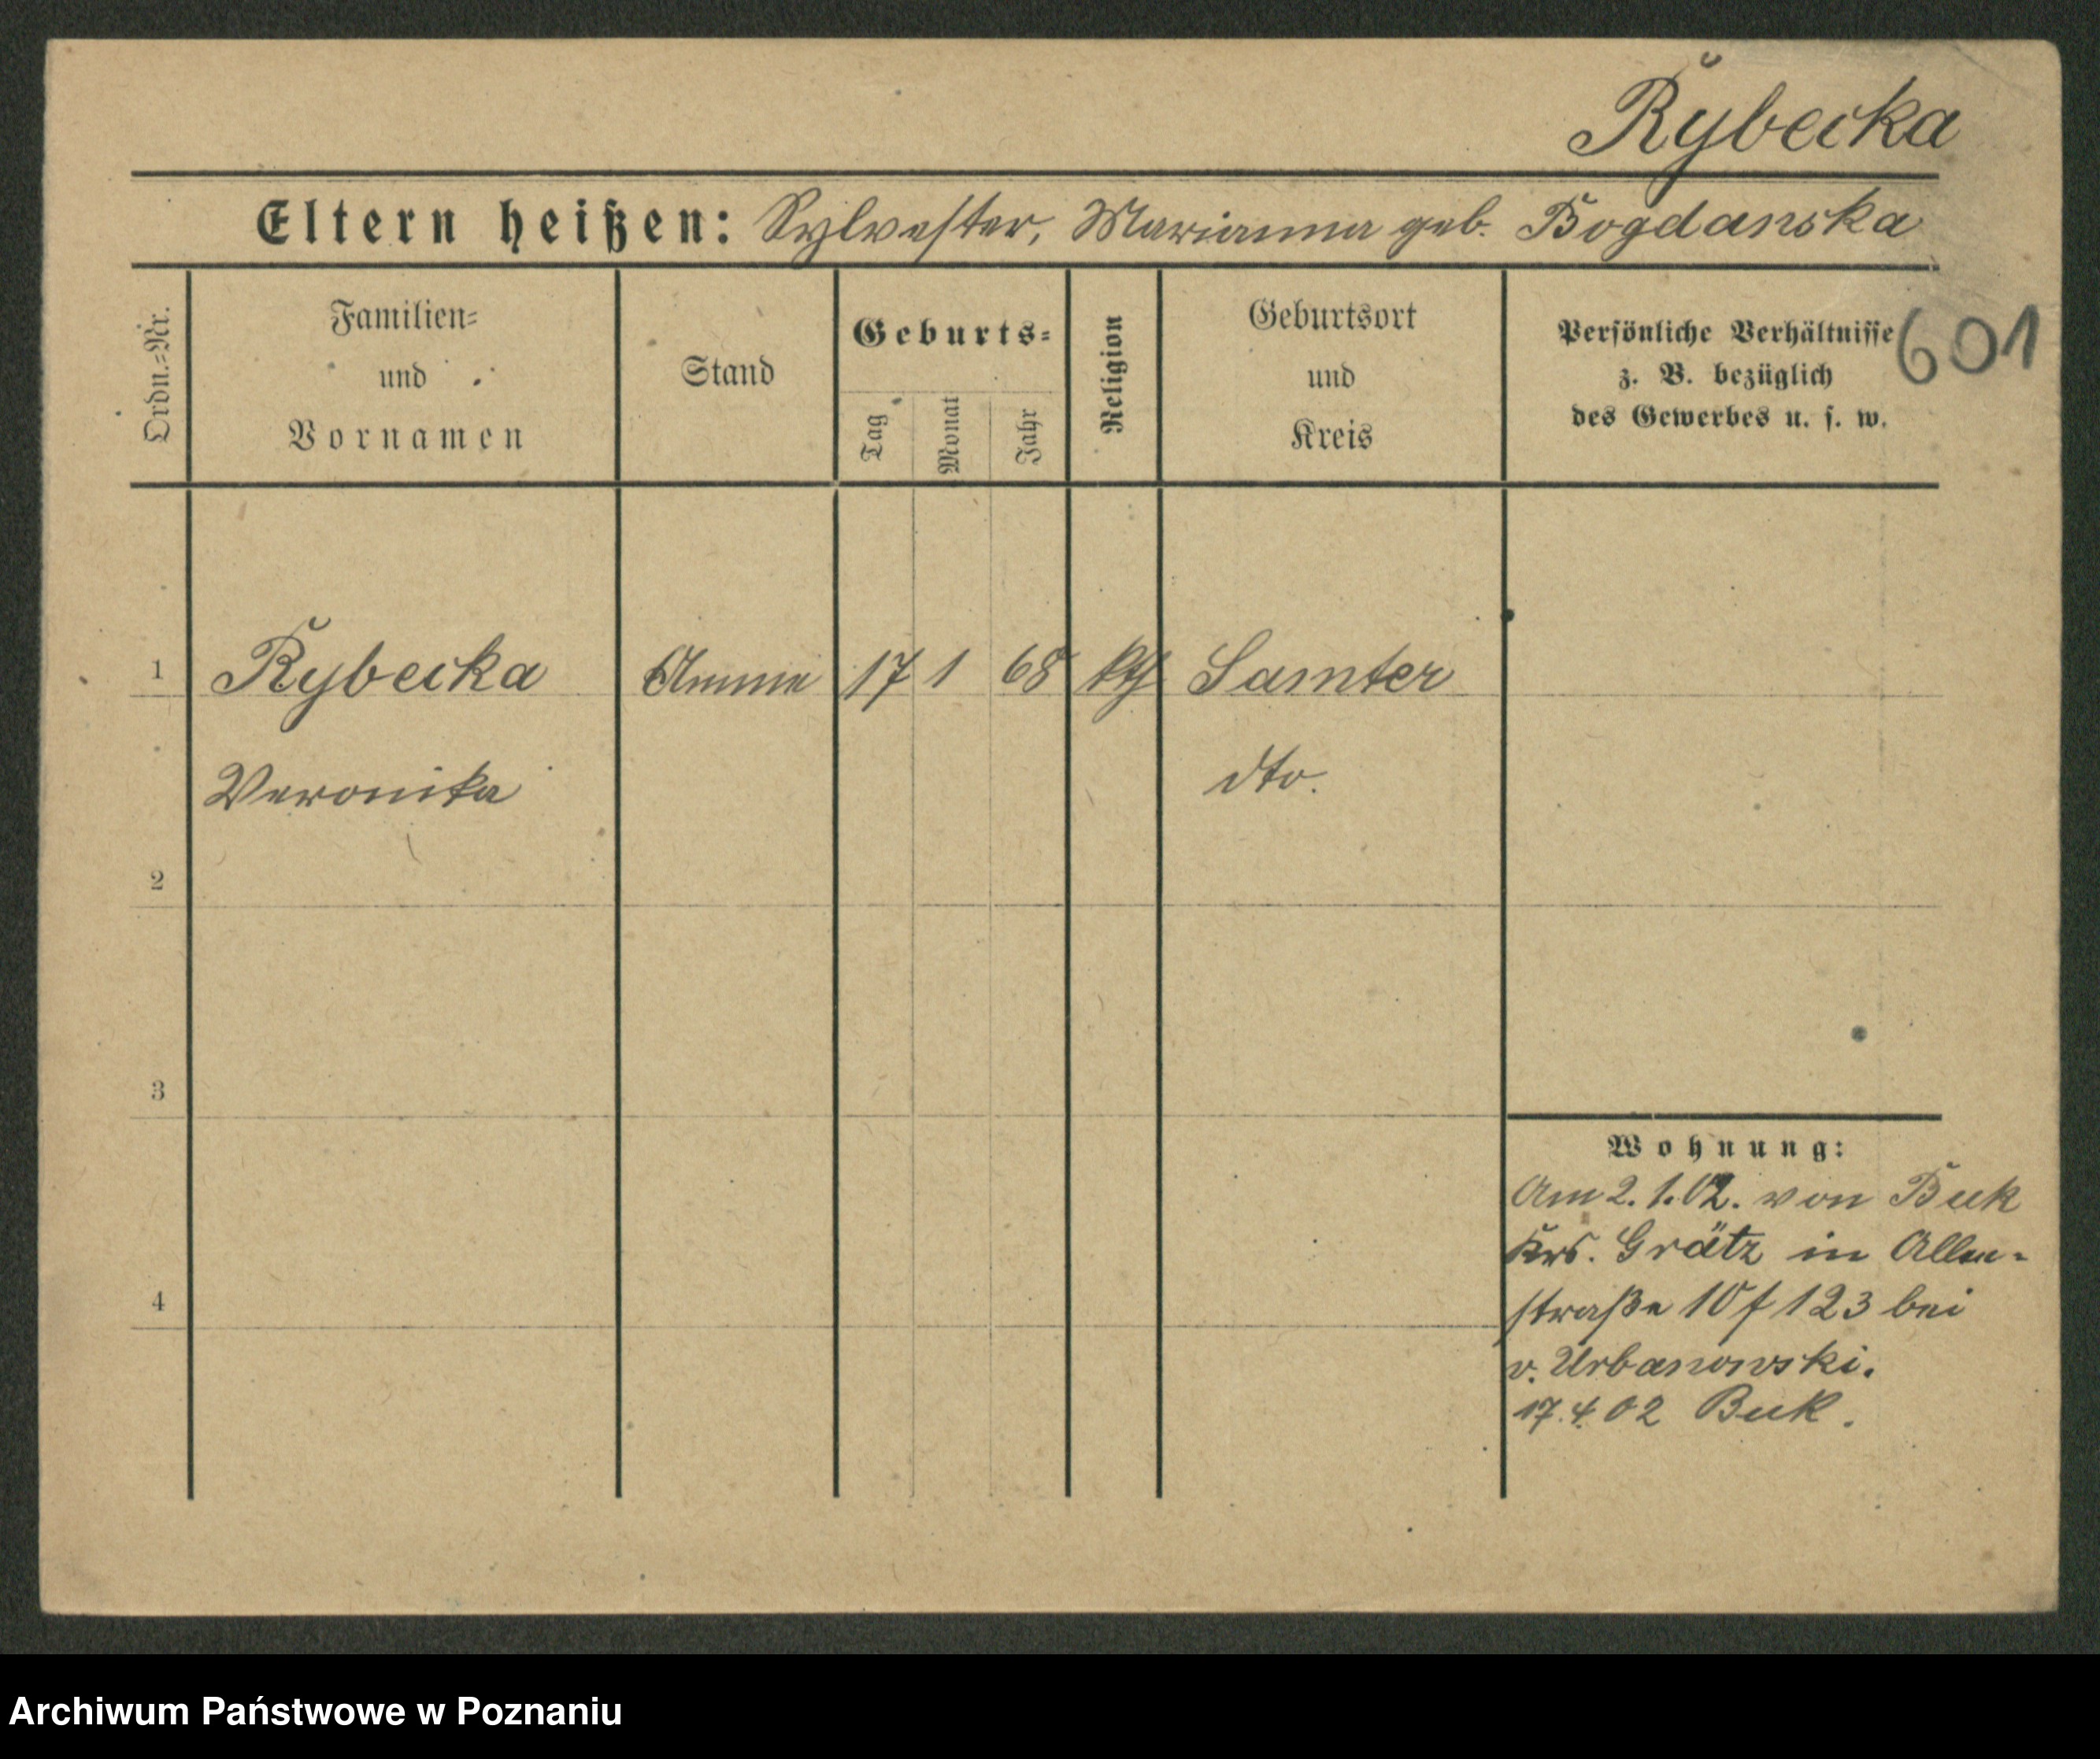 Rybecka
Eltern heißen: Sylvester, Marianna geb. Bogdanska
Ordn.=Nr.
Familien=
und
Vornamen
Stand
Geburts=
Tag
Monat
Jahr
Religion
Geburtsort
und
Kreis
Persönliche Verhältnisse
z. B. bezüglich
des Gewerbes u. s. w.
601
1 Rybecka Amme 17 1 68 kth Samter
Veronika dto.
2
3
4
Wohnung:
Am 2.1.02. von Buk
Krs. Grätz in
straße 10 f 123 bei
v. Urbanowski.
17.4.02 Buk.
Archiwum Państwowe w Poznaniu